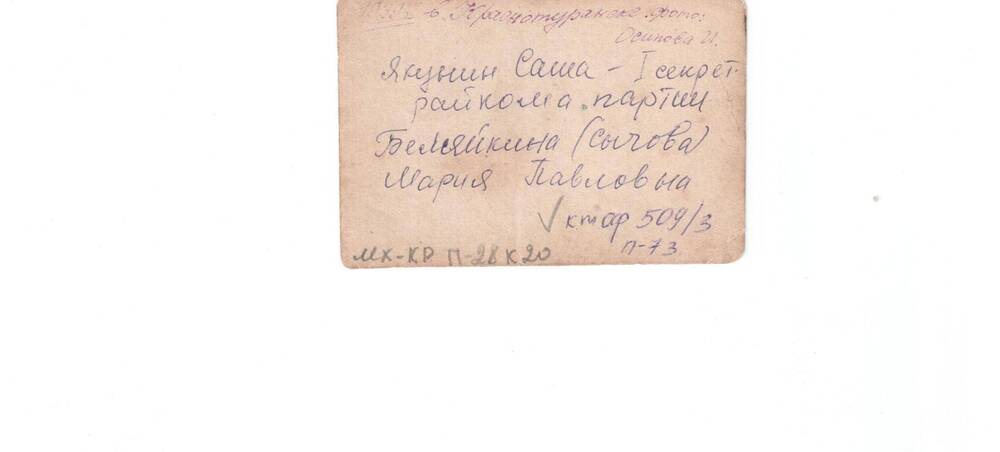 в Краснотуранске фото:
Осипова И.
Якунин Саша - I секрет.
райкома партии
Беляйкина (Сычова)
Мария Павловна
✓ ктар 509/3
П-73
МК-КР П-28 К20